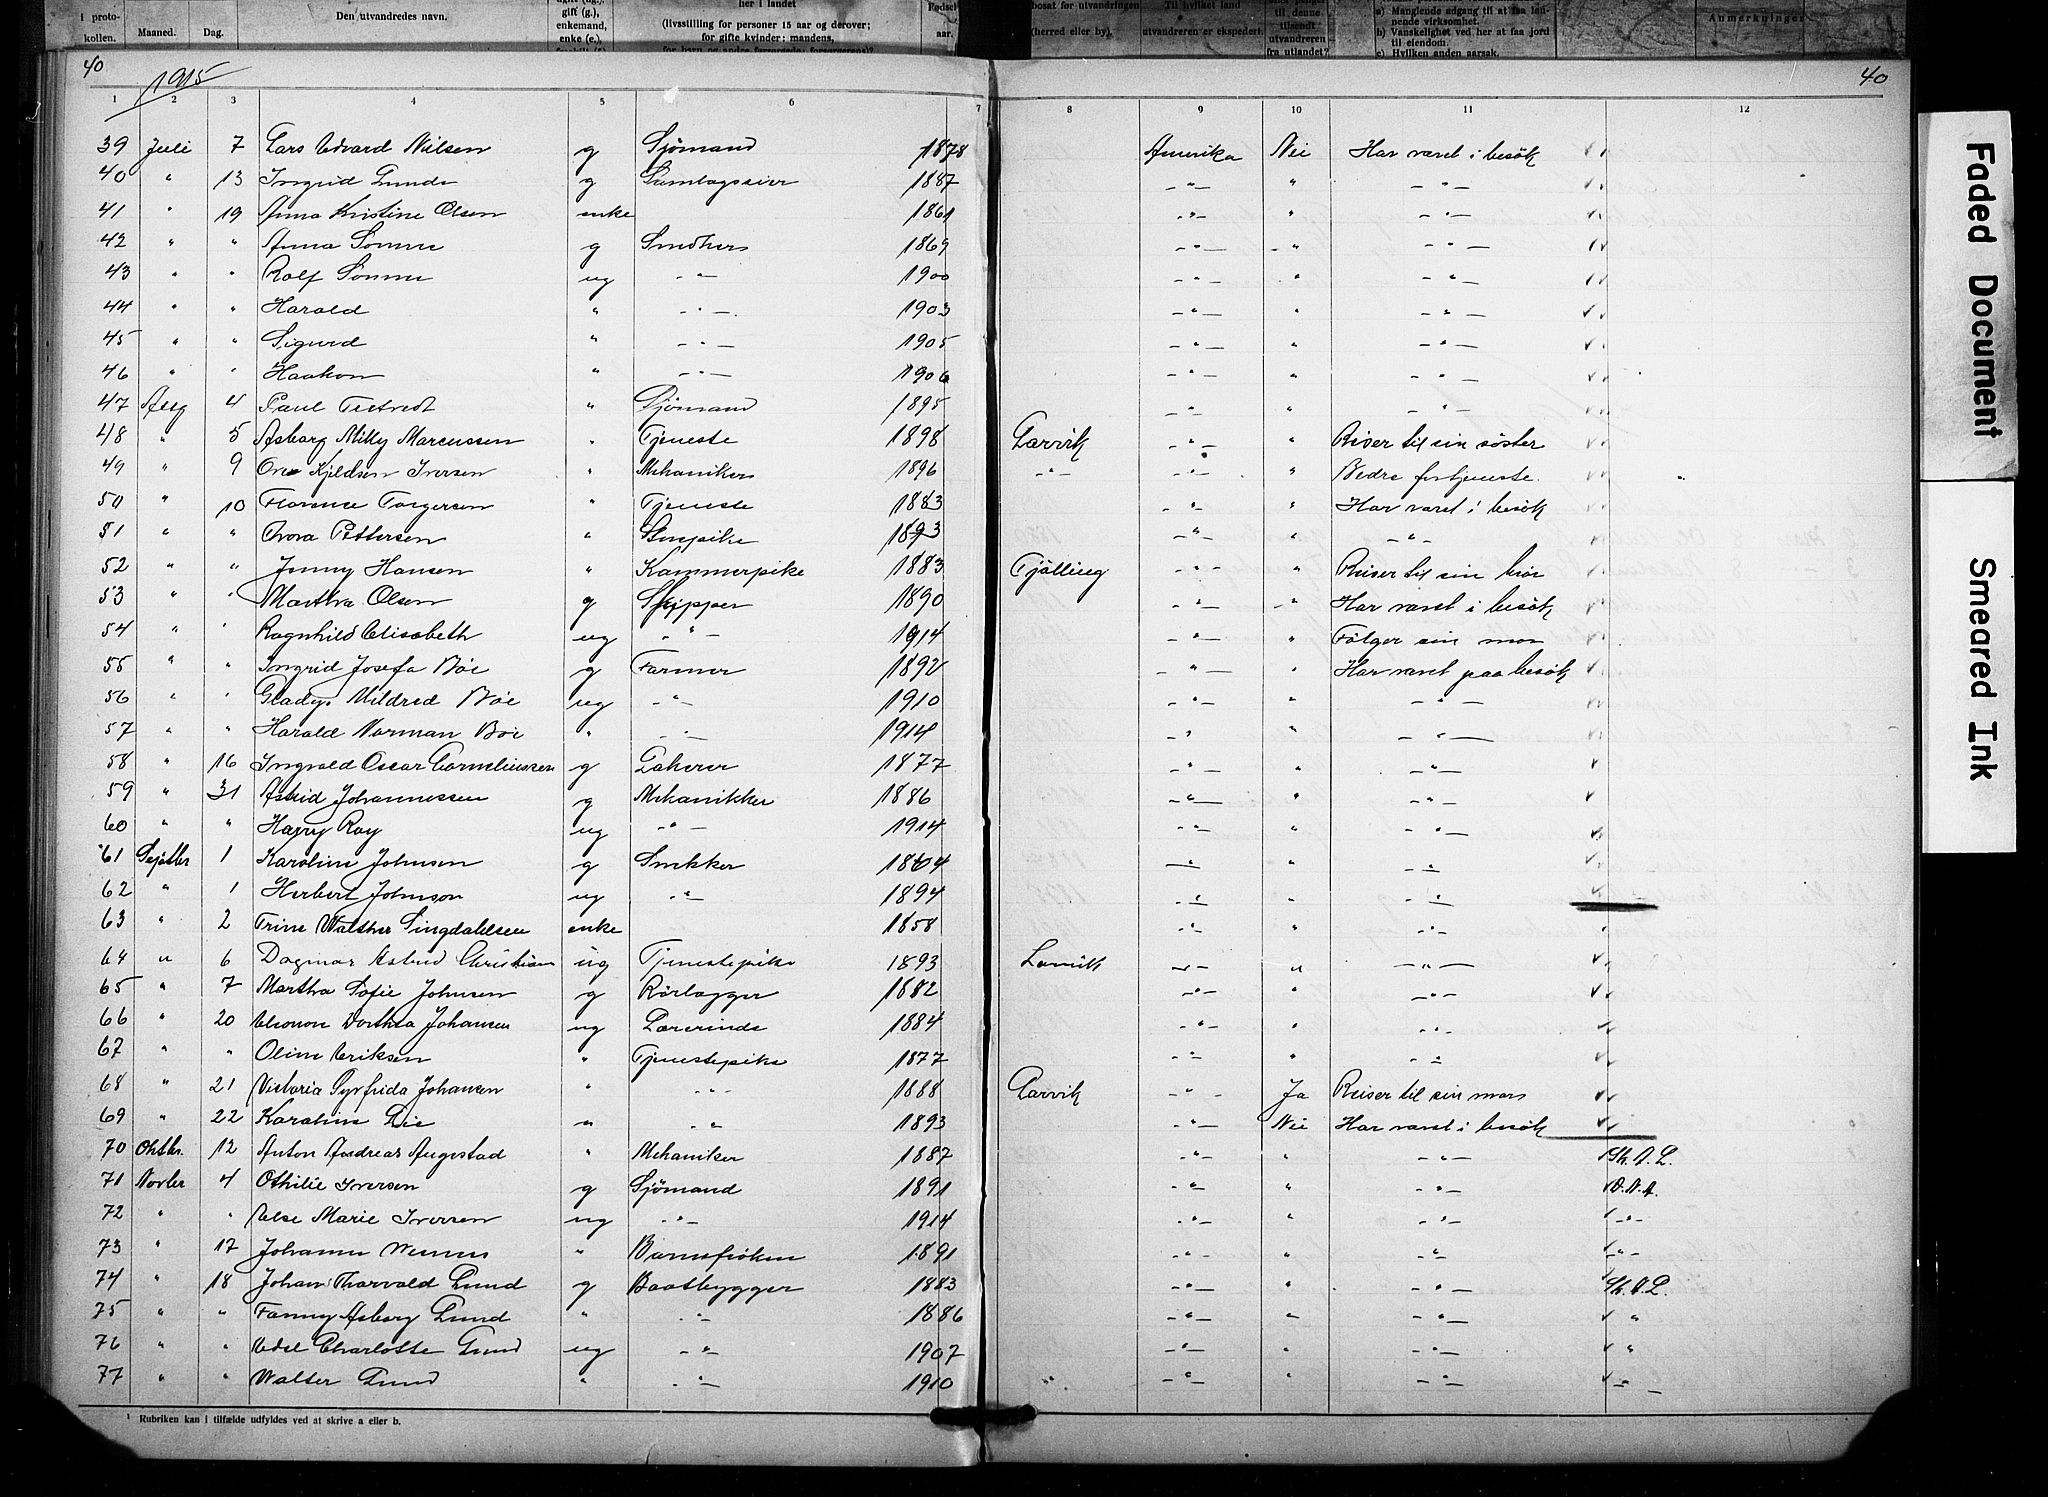 i proto- kollen. Maaned. Dag. Den utvandredes navn. gift (g.), enkemand, enke (e.), her i landet (livsstilling for personer 15 aar og derover; for gifte kvinder: mandens, Fødsels- aar. bosat før utvandringen (herred eller by). Til hvilket land utvandreren er ekspedert. til denne tilsendt utvandreren fra utlandet? a) Manglende adgang til at faa løn- nende virksomhet. b) Vanskelighet ved her at faa jord til eiendom. c) Hvilken anden aarsak. Anmerkninger
40 1915 40
1 2 3 4 5 6 7 8 9 10 11 12
39 Juli 7 Lars Edvard Nilsen g Sjømand 1878 Amerika Nei Har været i besök
40 " 13 Ingrid Lunde g 1887 -"- " -"-
41 " 19 Anna Kristine Olsen enke 1861 -"- " -"-
42 " " Anna Sømme g 1869 -"- " -"-
43 " " Rolf Sømme ug -"- 1900 -"- " -"-
44 " " Harald " -"- 1903 -"- " -"-
45 " " Sigurd " -"- 1905 -"- " -"-
46 " " Haakon " -"- 1906 -"- " -"-
47 Aug 4 Paul " Sjømand 1895 -"- " -"-
48 " 5 Asborg Milly Marcussen " Tjeneste 1898 Larvik -"- " Reiser til sin söster
49 " 9 Ove Kjeldsen Iversen " Mekaniker 1896 -"- -"- " Bedre fortjeneste.
50 " 10 Florence Torgersen " Tjeneste 1883 -"- " Har været i besök
51 " " Thora Pettersen " Stuepike 1893 -"- " -"-
52 " " Jenny Hansen " Kammerpike 1883 Tjölling -"- " Reiser til sin bror
53 " " Martha Olsen g Skipper 1890 -"- " Har været i besök
54 " " Ragnhild Elisabeth ug -"- 1914 -"- " Fölger sin mor
55 " " Ingrid Josefa Böe g Farmer 1892 -"- " Har været paa besök
56 " " Gladys Mildred Böe ug -"- 1910 -"- " -"-
57 " " Harald Norman Böe " -"- 1914 -"- " -"-
58 " 16 Ingvald Oscar Corneliussen g Lakerer 1877 -"- " -"-
59 " 31 Astrid Johannessen g Mekanikker 1886 -"- " -"-
60 " " Harry Roy ug -"- 1914 -"- " -"-
61 Septbr 1 Karoline Johnsen g Snekker 1864 -"- " -"-
62 " 1 Herbert Johnson ug -"- 1894 -"- " -"-
63 " 2 Trine Walther Singdahlsen enke 1858 -"- " -"-
64 " 6 Dagmar Astrid Christian ug Tjenestepike 1893 -"- " -"-
65 " 7 Martha Sofie Johnsen g Rörlægger 1882 -"- " -"-
66 " 20 Elionor Dorthea Johansen ug Lærerinde 1884 -"- " -"-
67 " " Oline Eriksen " Tjenestepike 1877 -"- " -"-
68 " 21 Victoria Syrfrida Johansen " -"- 1888 Larvik -"- Ja Reiser til sin mors
69 " 22 Karoline Lie " -"- 1893 -"- Nei Har været i besök
70 Oktbr. 12 Anton Andreas Augestad " Mekaniker 1887 -"- " -"- Sk. A. L.
71 Novbr 4 Othilie Iversen g Sjömand 1891 -"- " -"- D. N. A.
72 " " Else Marie Iversen ug -"- 1914 -"- " -"- -"-
73 " 17 Johanne " Barnefröken 1891 -"- " -"- -"-
74 " 18 Johan Tharvald Lund g Baatbygger 1883 -"- " -"- Sk. A. L.
75 " " Fanny Asborg Lund " -"- 1886 -"- " -"- "
76 " " Edel Charlotte Lund ug -"- 1907 -"- " -"- "
77 " " Walter Lund " -"- 1910 " -"- " -"- -"-
1 Rubriken kan i tilfælde udfyldes ved at skrive a eller b.
Faded Document
Smeared Ink